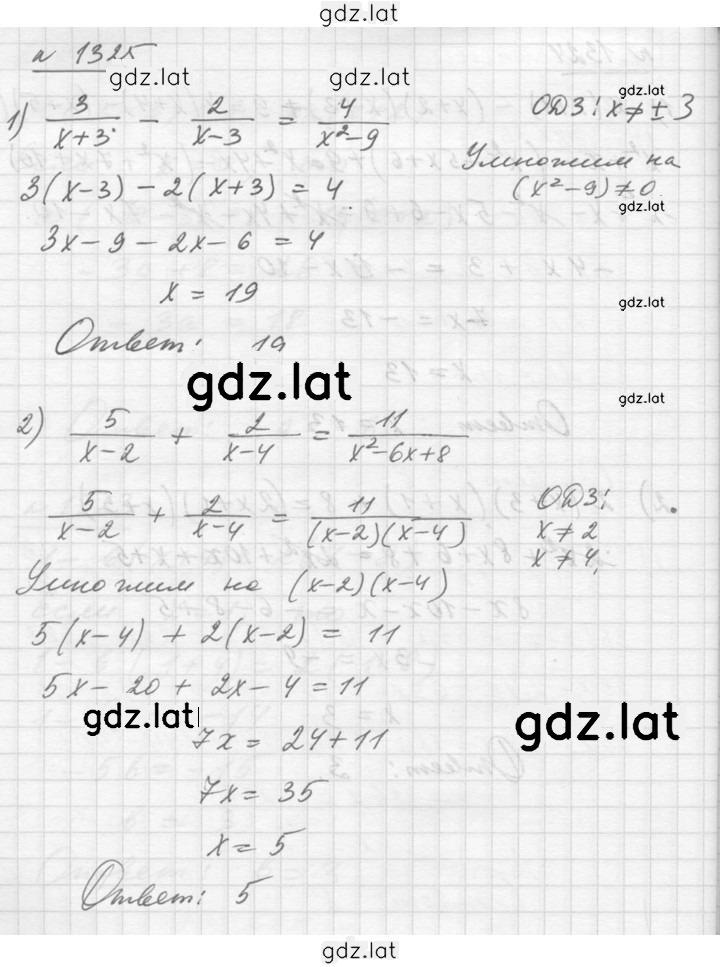 gdz.lat
№ 1325
gdz.lat gdz.lat gdz.lat
1) 3/(x+3) - 2/(x-3) = 4/(x²-9) ОДЗ: x≠±3
Умножим на
3(x-3) - 2(x+3) = 4 (x²-9)≠0.
gdz.lat
3x - 9 - 2x - 6 = 4
x = 19
gdz.lat
Ответ: 19
gdz.lat
gdz.lat
2) 5/(x-2) + 2/(x-4) = 11/(x²-6x+8)
5/(x-2) + 2/(x-4) = 11/((x-2)(x-4)) ОДЗ:
x≠2
x≠4,
Умножим на (x-2)(x-4)
5(x-4) + 2(x-2) = 11
5x - 20 + 2x - 4 = 11
gdz.lat gdz.lat
7x = 24+11
7x = 35
x = 5
Ответ: 5
gdz.lat